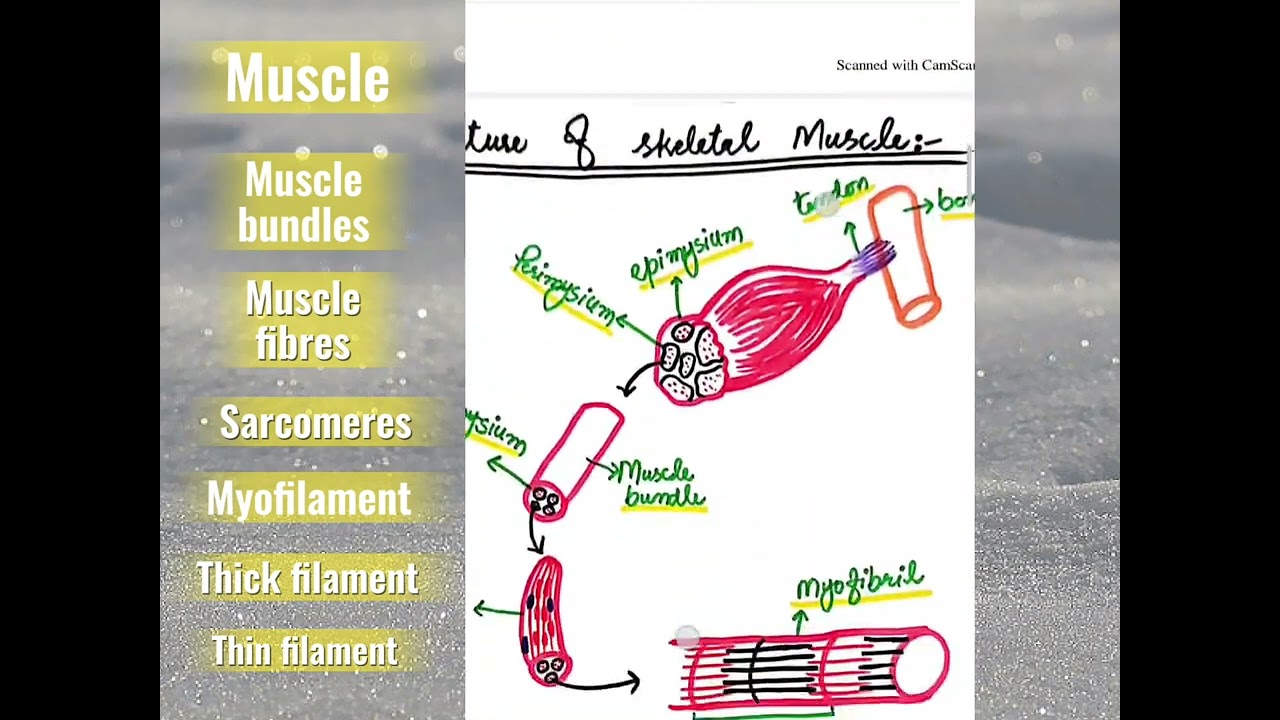 Muscle
Muscle
bundles
Muscle
fibres
Sarcomeres
Myofilament
Thick filament
Thin filament
Scanned with CamScan
ture of skeletal Muscle:-
tendon
bon
epimysium
Perimysium
ysium
Muscle
bundle
Myofibril